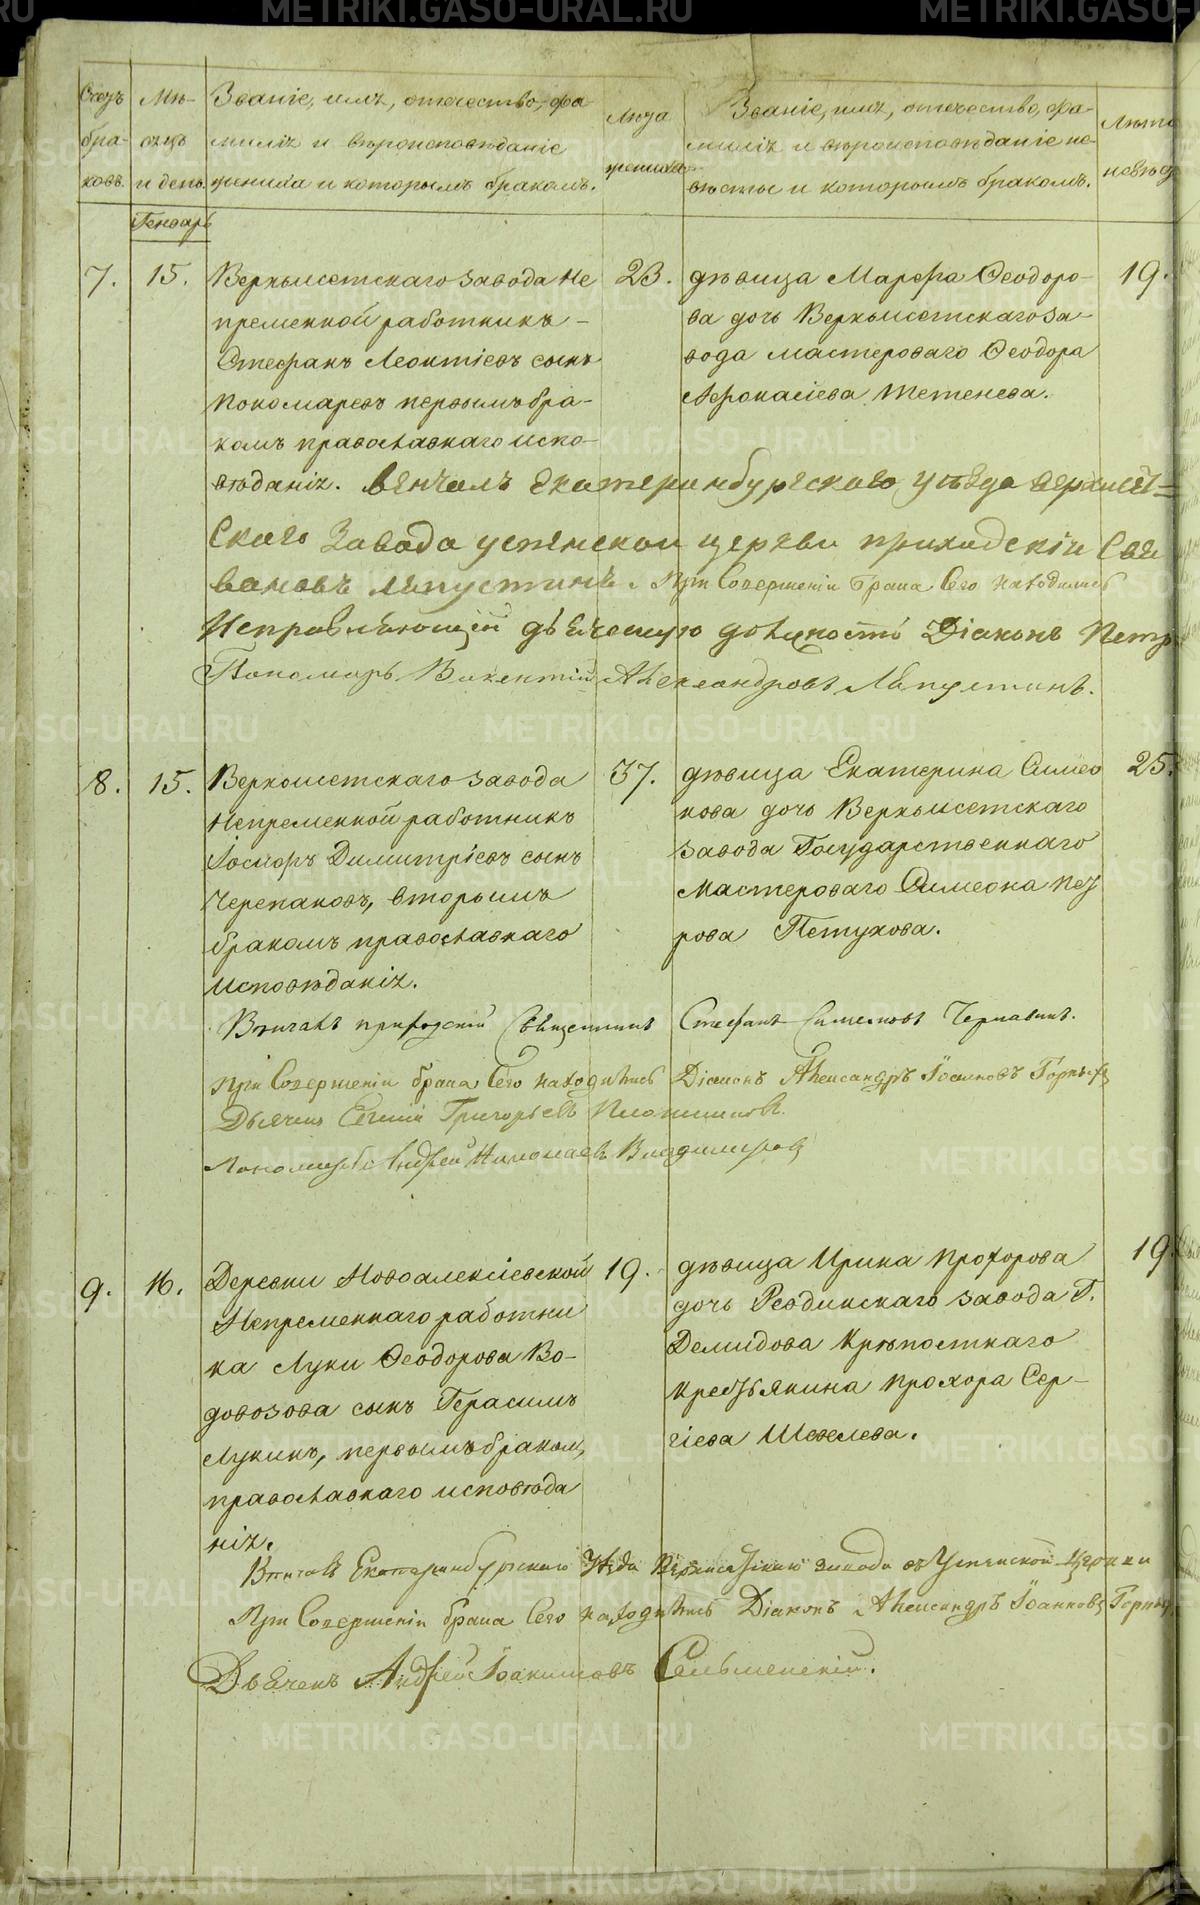 Счетъ браковъ.
Мѣсяцъ и день.
Званіе, имя, отечество, фа
милія и вѣроисповѣданіе
жениха и которымъ бракомъ.
Лѣта жениха
Званіе, имя, отечество, фа-
милія и вѣроисповѣданіе не-
вѣсты и которымъ бракомъ.
Лѣта невѣс
Генварь
7. 15.
Верхъисетскаго завода Не
премѣнной работникъ -
Стефанъ Леонтіевъ сынъ
Пономаревъ первымъ бра-
комъ православнаго испо-
вѣданія.
23.
дѣвица Марфа Ѳеодоро-
ва дочь Верхъисетскаго за-
вода мастероваго Ѳеодора
Афонасіева Тетенева.
19.
Вѣнчалъ Екатеринбургскаго уѣзда верхисет=
скаго Завода успенской церкви приходскій Свя
Лапустинъ. При Совершеніи Брака Сего находились
Исправляющій дьяческую должность Діаконъ Петр
Пономарь Викентій Александровъ Лапустинъ.
8. 15.
Верхоисетскаго завода
Непремѣнной работникъ
Іосифъ Димитріевъ сынъ
Черепановъ, вторымъ
бракомъ православнаго
исповѣданія.
37.
дѣвица Екатерина Симео
нова дочь Верхъисетскаго
завода Государственнаго
Мастероваго Симеона
Петухова.
25.
Вѣнчалъ приходскій Священникъ Стефанъ Симеоновъ Чернавинъ.
При Совершеніи брака Сего находились Діаконъ Александръ Іоанновъ Горныхъ
Дьячекъ Евгеній Григорьевъ
Пономарь Андрей Николаевъ Владимировъ
9. 16.
Деревни Новоалексіевской
Непременнаго работни
ка Луки Ѳеодорова Во-
довозова сынъ Герасимъ
Лукинъ, первымъ бракомъ,
православнаго исповѣда
нія.
19.
дѣвица Ирина Прохорова
дочь Ревдинскаго завода Г.
Демидова Крѣпостнаго
крестьянина Прохора Сер-
гіева Шевелева.
19
Вѣнчанъ Екатеринбургскаго Уѣзда Верхисетскаго завода въ Успенской Церкви
При Совершеніи брака Сего находились Діаконъ Александръ Іоанновъ Горных
Дьячекъ Андрей Іоакимовъ Сельменскій.
METRIKI.GASO-URAL.RU